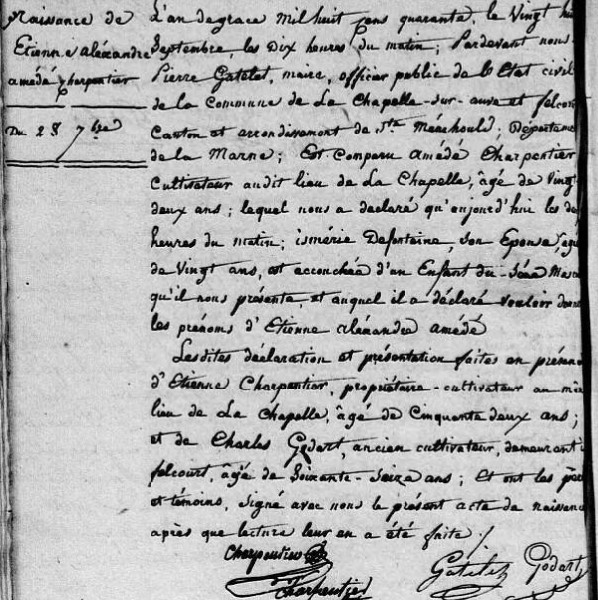 Naissance de
Etienne alexandre
amédé charpentier
Du 28 7bre
L'an de grace Mil huit cens quarante, le Vingt hui
Septembre, les Dix heures du matin; Pardevant nous
Pierre Gatelet, maire, officier public de l'Etat civil
de la Commune de La Chapelle-sur-auve et felcour
Canton et arrondissement de Ste Ménéhould; Départeme
de la Marne; Est Comparu amédé Charpentier
Cultivateur audit lieu de La Chapelle, âgé de Vingt
deux ans; lequel nous a déclaré qu'aujourd'hui les de
heures du matin; ismérie Defontaine, Son Epouse, agé
de Vingt ans, est accouchée d'un Enfant du Séxe Mascu
qu'il nous présente, et auquel il a déclaré Vouloir donne
les prénoms d'Etienne aléxandre amédé
Lesdites déclaration et présentation faites en présenc
d'Etienne Charpentier, propriétaire-cultivateur au mê
lieu de La Chapelle, âgé de Cinquante deux ans;
et de Charles Godart, ancien cultivateur, demeurant
felcourt, âgé de Soixante-Seize ans; Et ont les père
et témoins, signé avec nous le présent acte de naissanc
après que lecture leur en a été faite.
Charpentier
Charpentier
Gatelet
Godart